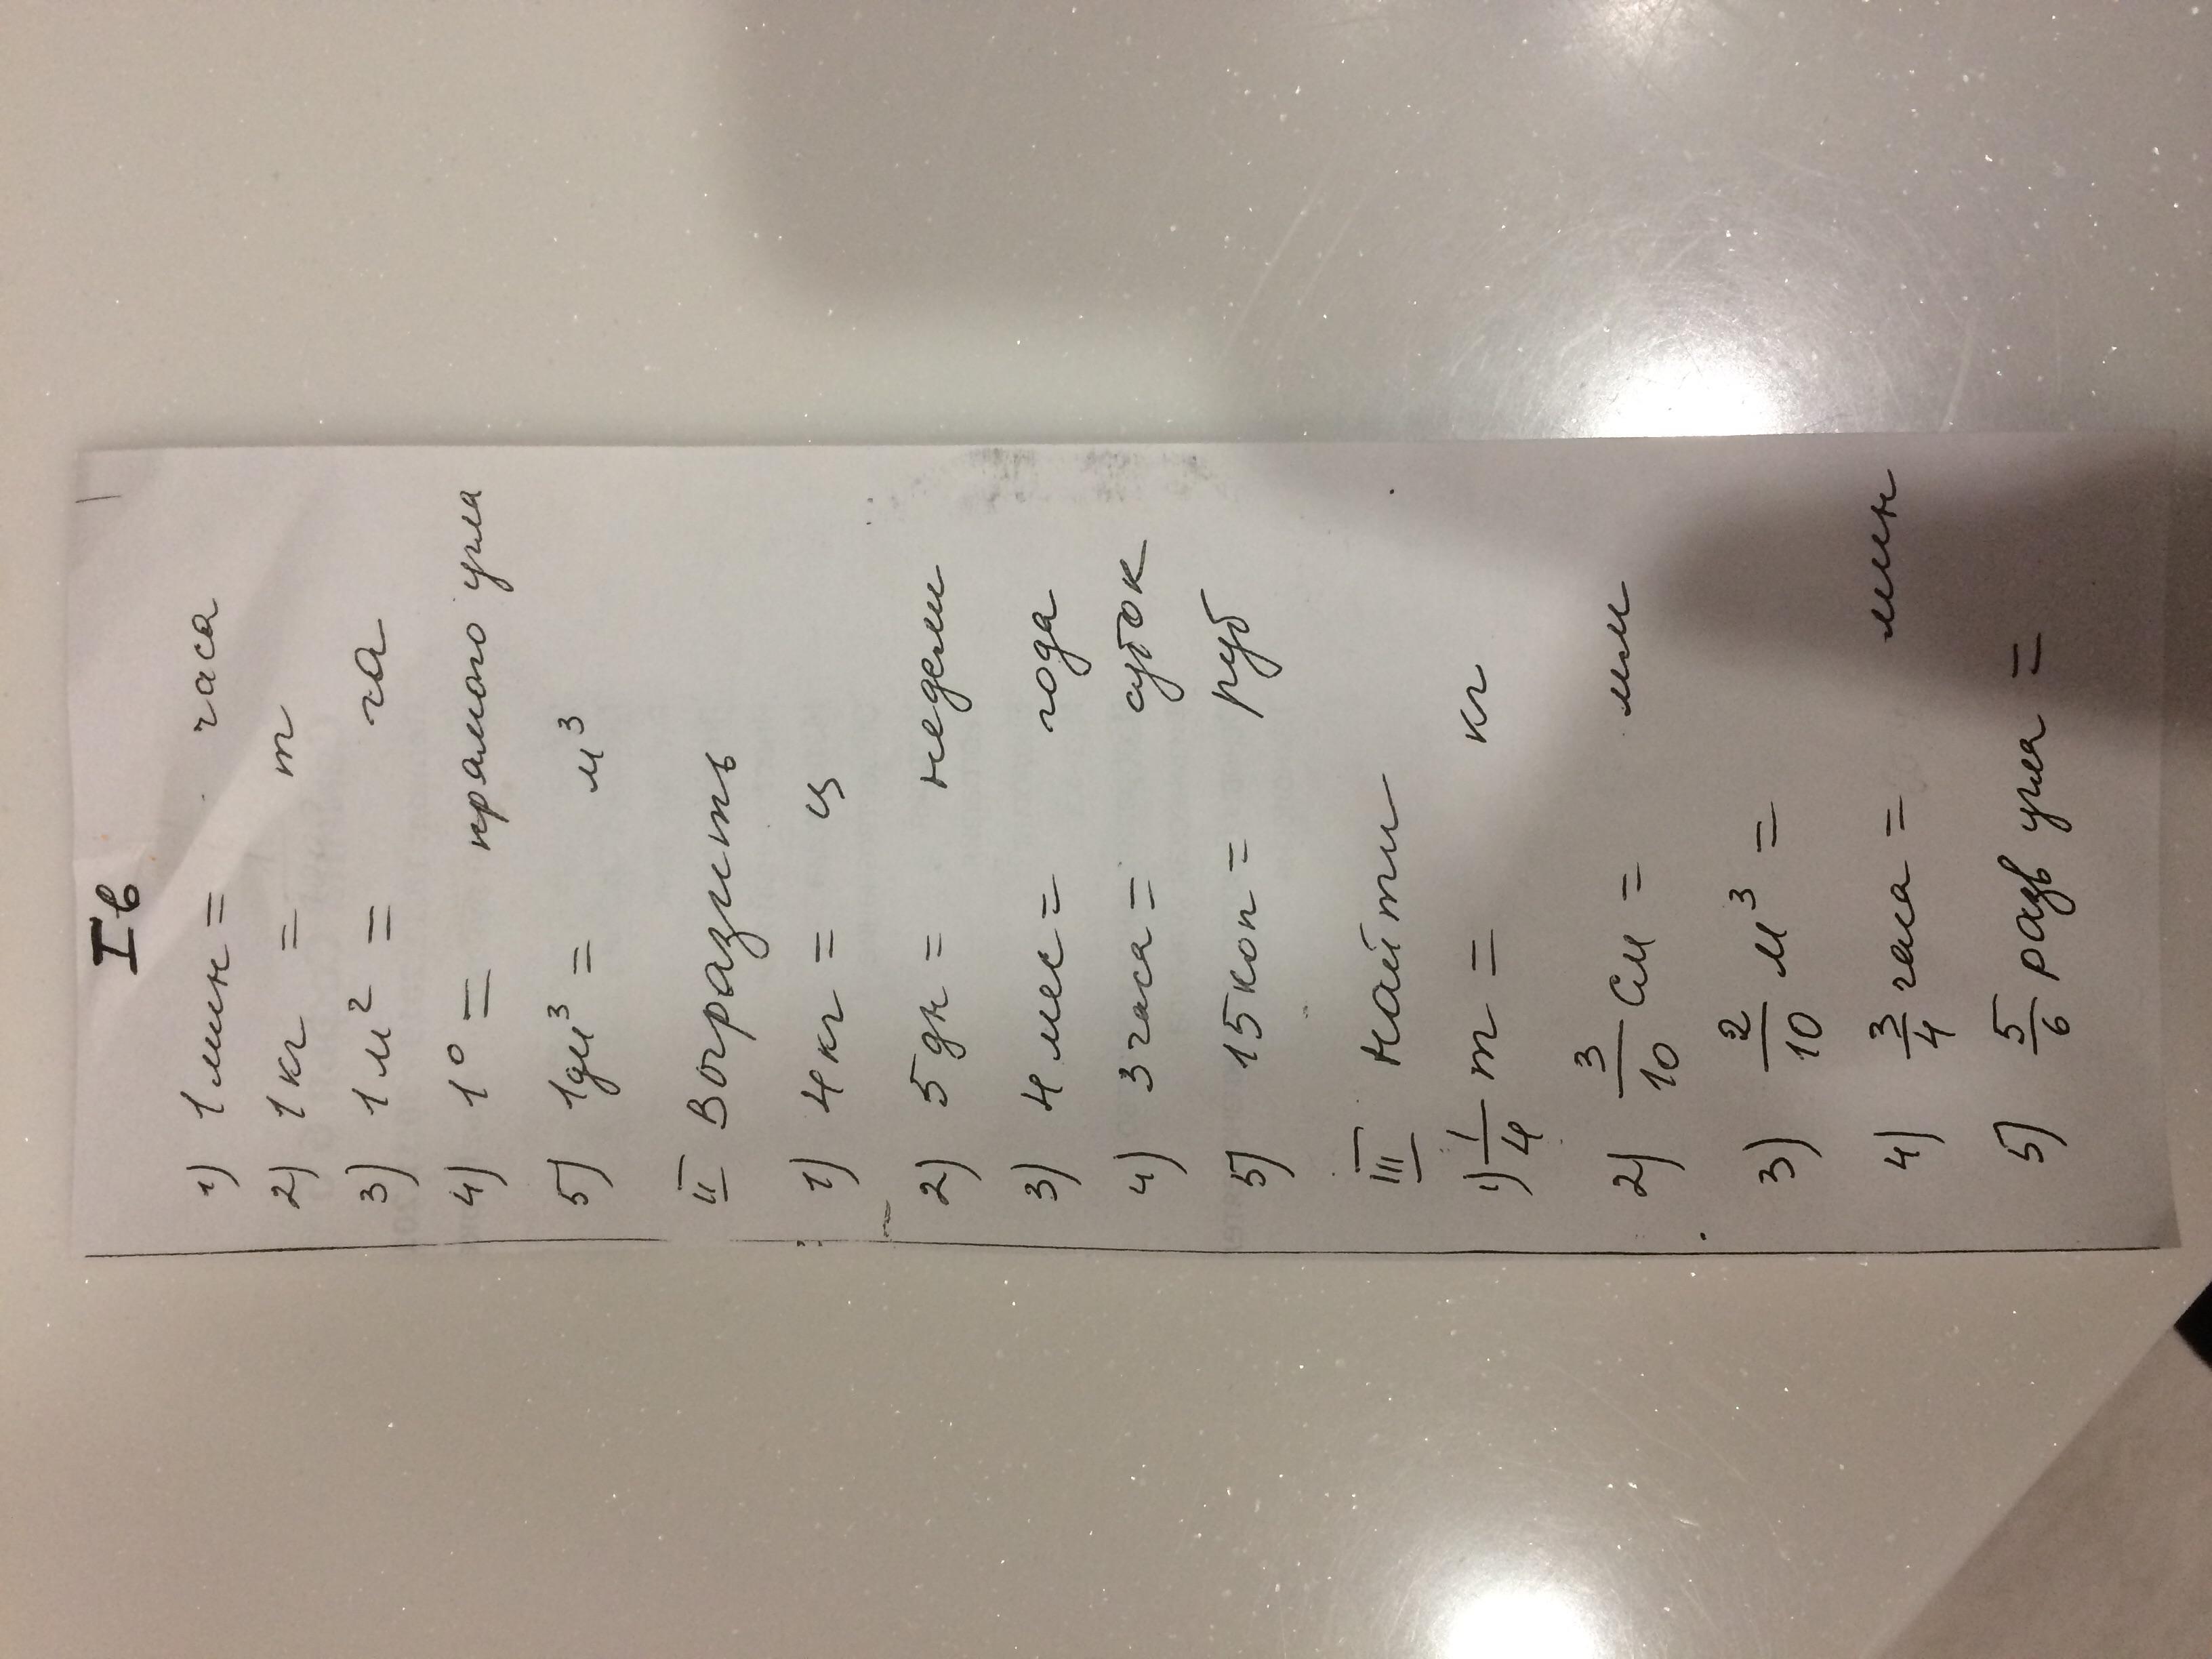 Iв
1) 1 мин = часа
2) 1 кг = т
3) 1 м² = га
4) 1° = прямого угла
5) 1 дм³ = м³
II Вогразить
1) 4 кг = ц
2) 5 дн = недели
3) 4 мес = года
4) 3 часа = суток
5) 15 коп = руб
III Найти
1) 1/4 т = кг
2) 3/10 см = мм
3) 2/10 м³ =
4) 3/4 часа = мин
5) 5/6 разв угла =